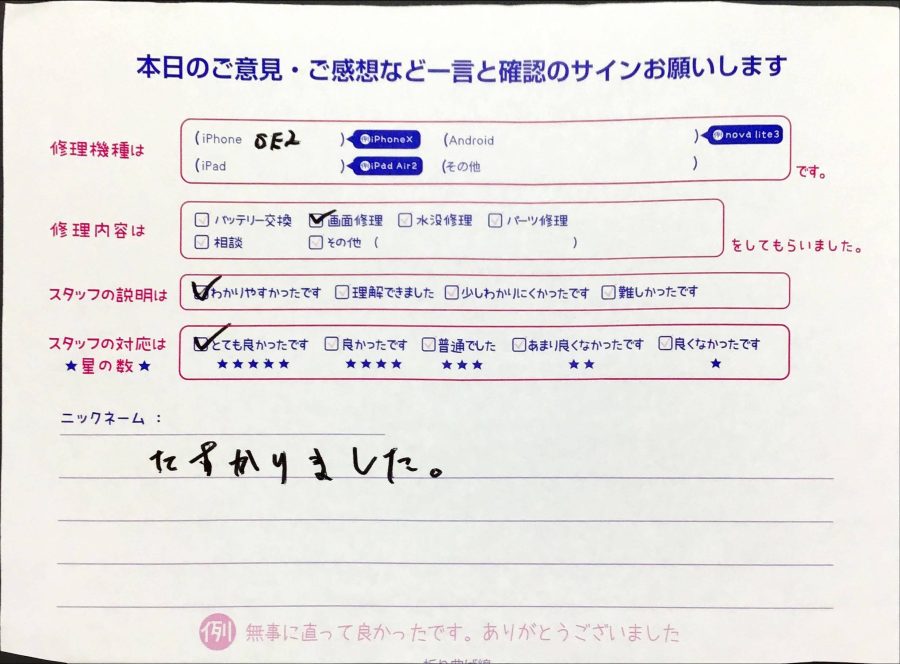 本日のご意見・ご感想など一言と確認のサインお願いします
修理機種は (iPhone SE2 ) 例 iPhoneX (Android ) 例 nova lite3
(iPad ) 例 iPad Air2 (その他 ) です。
修理内容は バッテリー交換 ✓画面修理 水没修理 パーツ修理
相談 その他 ( ) をしてもらいました。
スタッフの説明は ✓わかりやすかったです 理解できました 少しわかりにくかったです 難しかったです
スタッフの対応は ✓とても良かったです 良かったです 普通でした あまり良くなかったです 良くなかったです
★星の数★ ★★★★★ ★★★★ ★★★ ★★ ★
ニックネーム：
たすかりました。
例 無事に直って良かったです。ありがとうございました